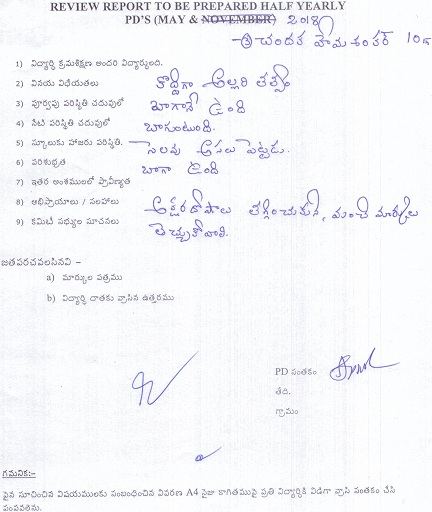 REVIEW REPORT TO BE PREPARED HALF YEARLY
PD'S (MAY & NOVEMBER) 2018
③ చందక హేమ శంకర్ 10
1) విద్యార్థి క్రమశిక్షణ అందరి విద్యార్థులది.
2) వినయ విధేయతలు కొద్దిగా అల్లరి తత్వం
3) పూర్వపు పరిస్థితి చదువులో బాగానే ఉంది
4) నేటి పరిస్థితి చదువులో బాగుంటుంది.
5) స్కూలుకు హాజరు పరిస్థితి. సెలవు అసలు పెట్టడు.
6) పరిశుభ్రత బాగా ఉంది
7) ఇతర అంశములలో ప్రావీణ్యత
8) అభిప్రాయాలు / సలహాలు అక్షరదోషాలు తగ్గించుకుని, మంచి మార్కులు
9) కమిటీ సభ్యుల సూచనలు తెచ్చుకోవాలి.
జతపరచవలసినవి –
a) మార్కుల పత్రము
b) విద్యార్థి దాతకు వ్రాసిన ఉత్తరము
PD సంతకం
తేది.
గ్రామం
గమనిక:–
పైన సూచించిన విషయములకు సంబంధించిన వివరణ A4 సైజు కాగితముపై ప్రతి విద్యార్థికి విడిగా వ్రాసి సంతకం చేసి
పంపవలెను.